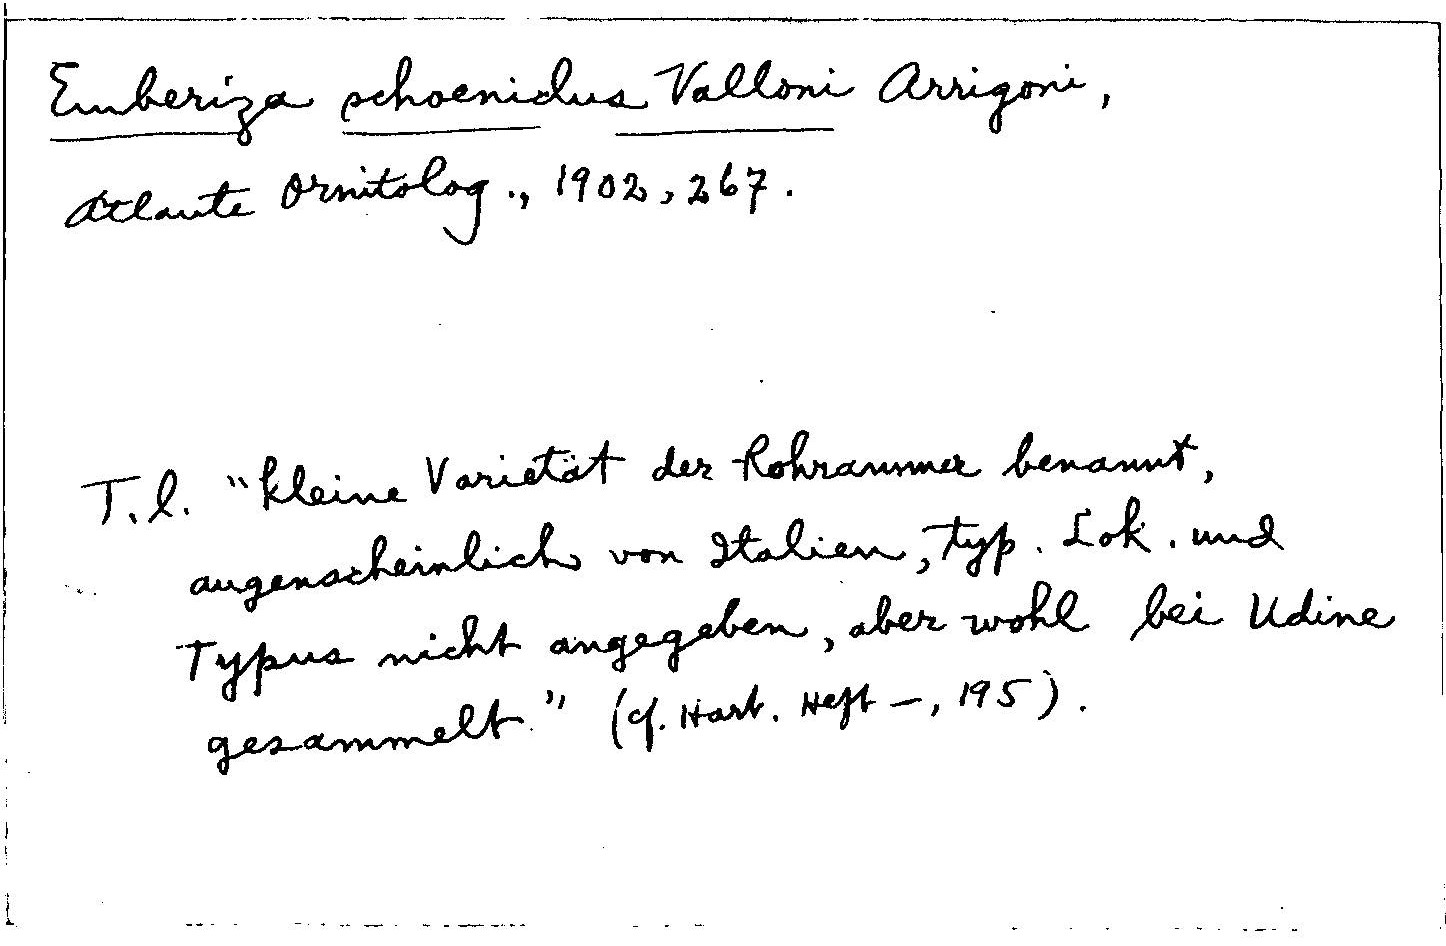 Emberiza schoeniclus Valloni Arrigoni,
Atlante Ornitolog., 1902, 267.
T.l. "kleine Varietät der Rohrammer benannt,
augenscheinlich von Italien, typ. Lok. und
Typus nicht angegeben, aber wohl bei Udine
gesammelt." (cf. Hart. Heft –, 195).